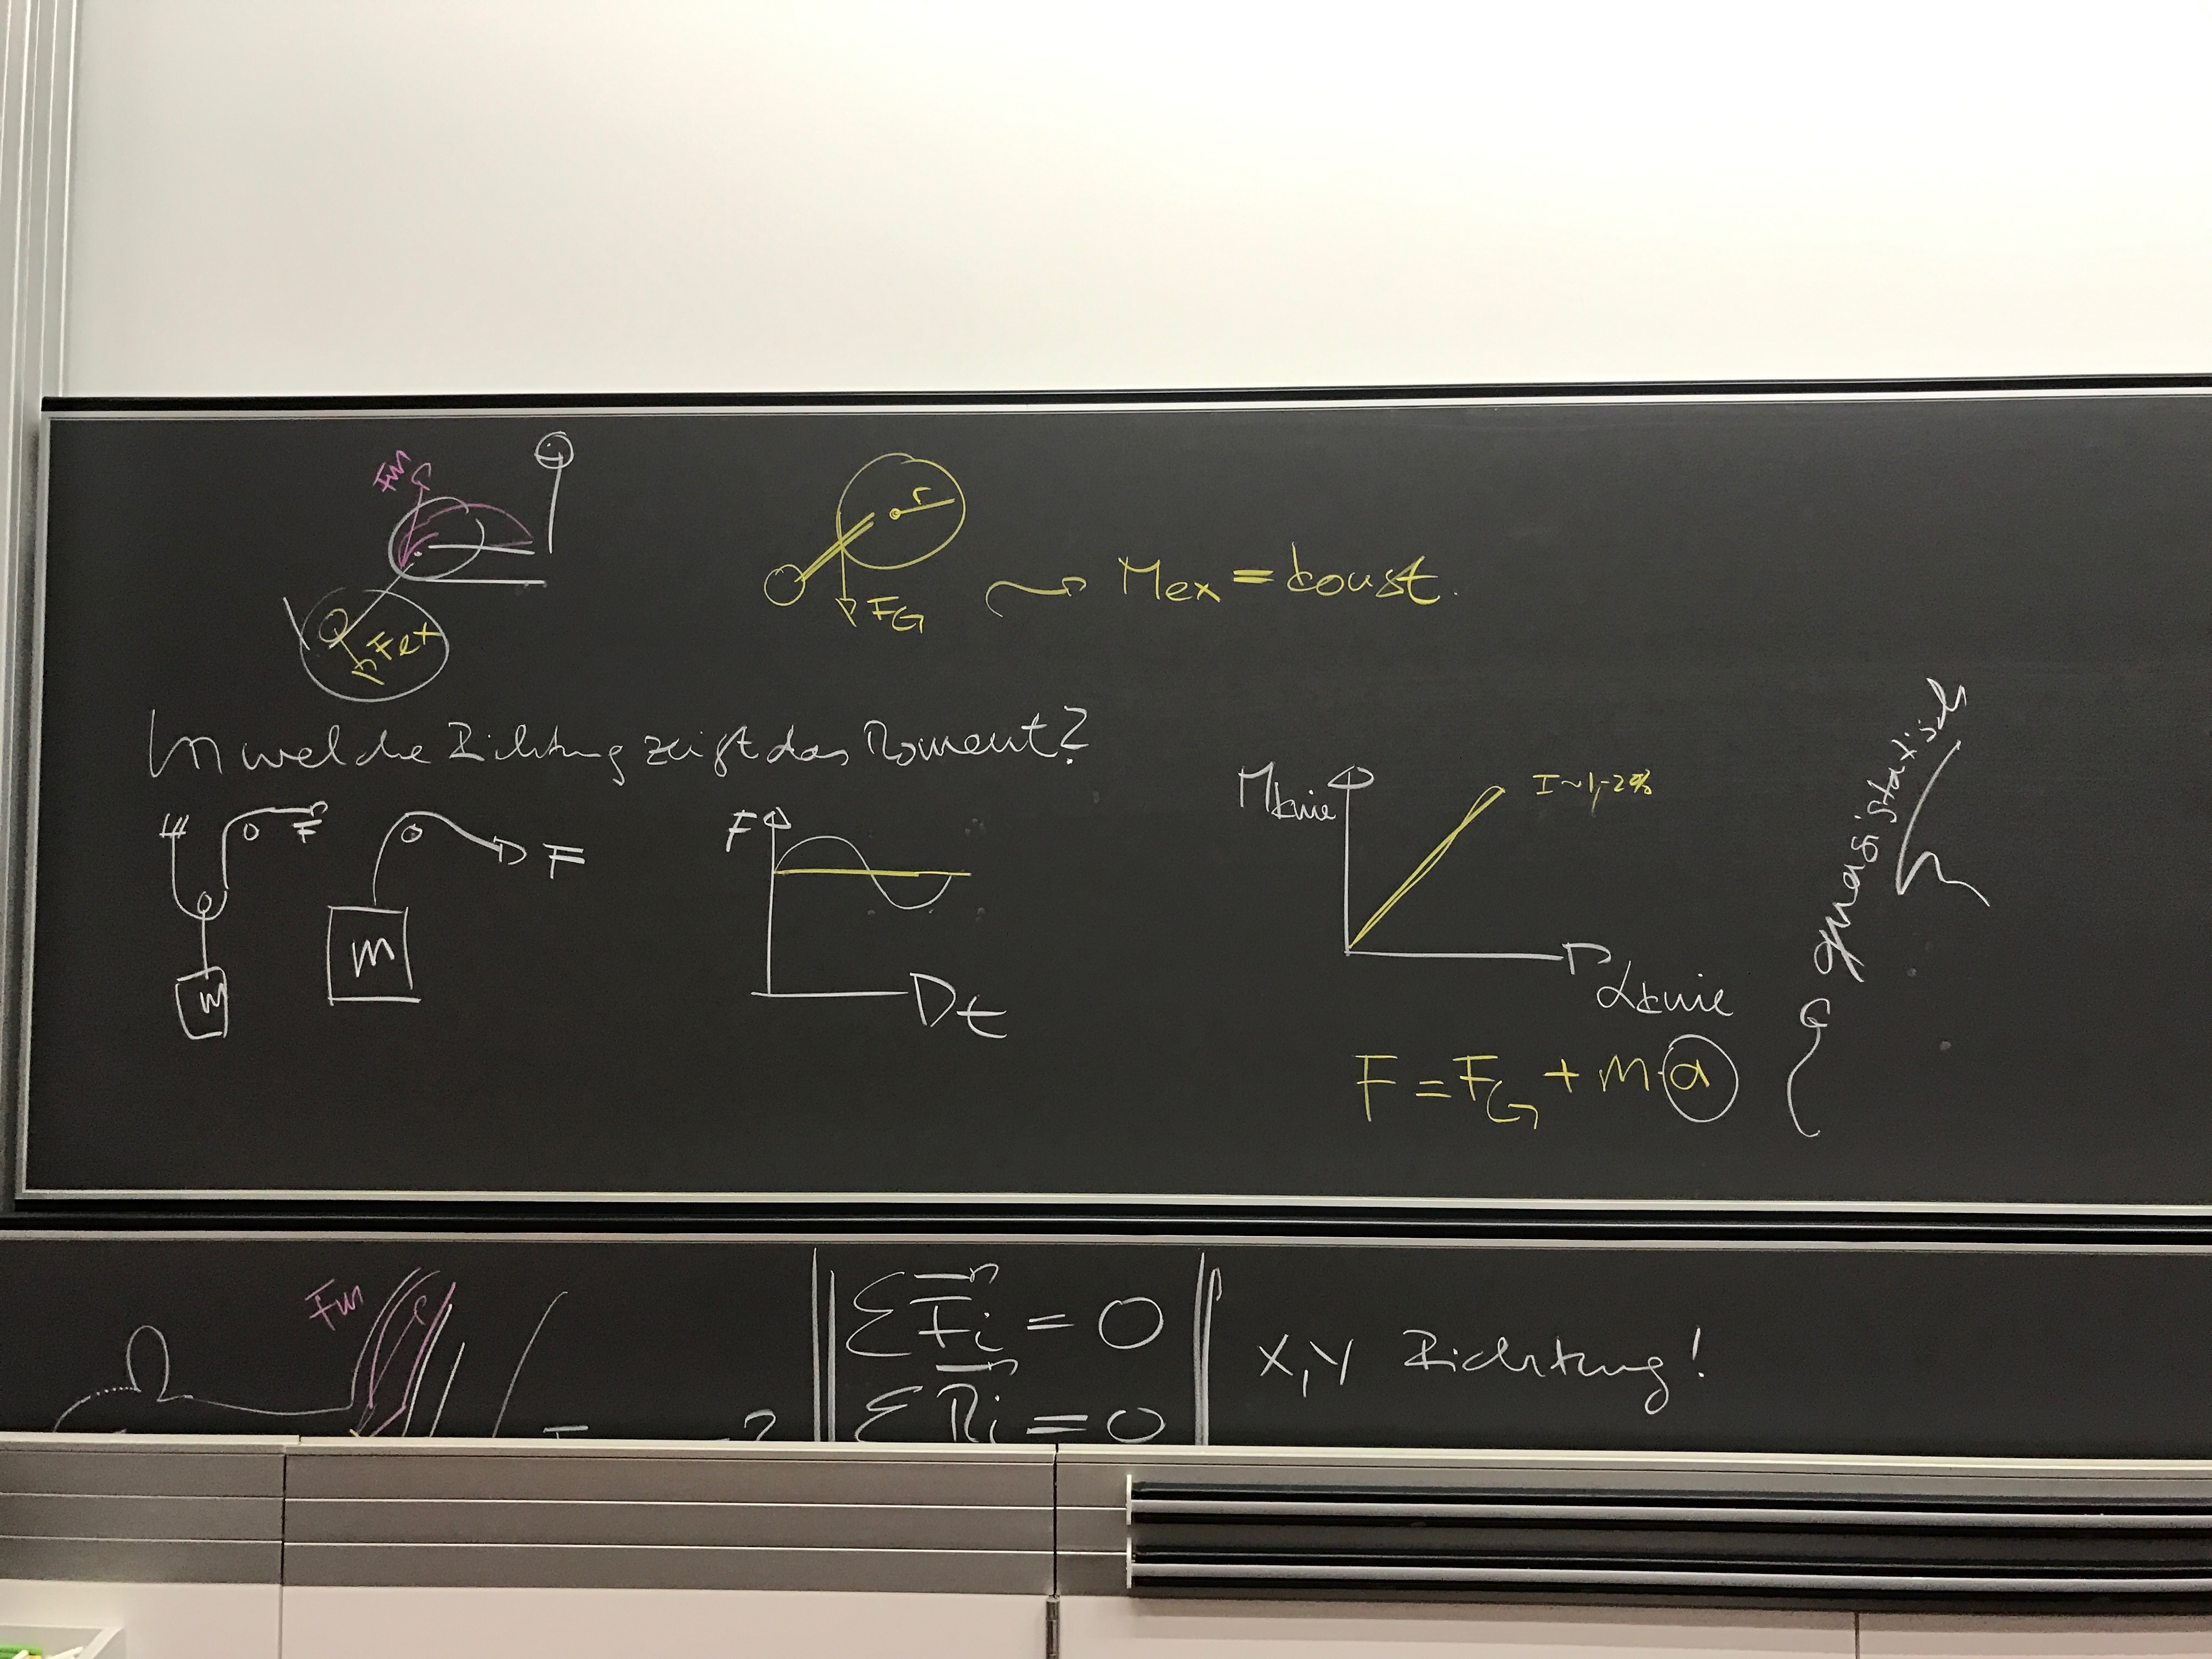 FM
r
Fex
FG
Mex = konst.
In welche Richtung zeigt das Moment?
F
F
m
m
F
t
MKnie
I ~ 1,-2%
αKnie
quasistatisch
F = FG + m·a
FM
ΣFi = 0
ΣMi = 0
X,Y Richtung!